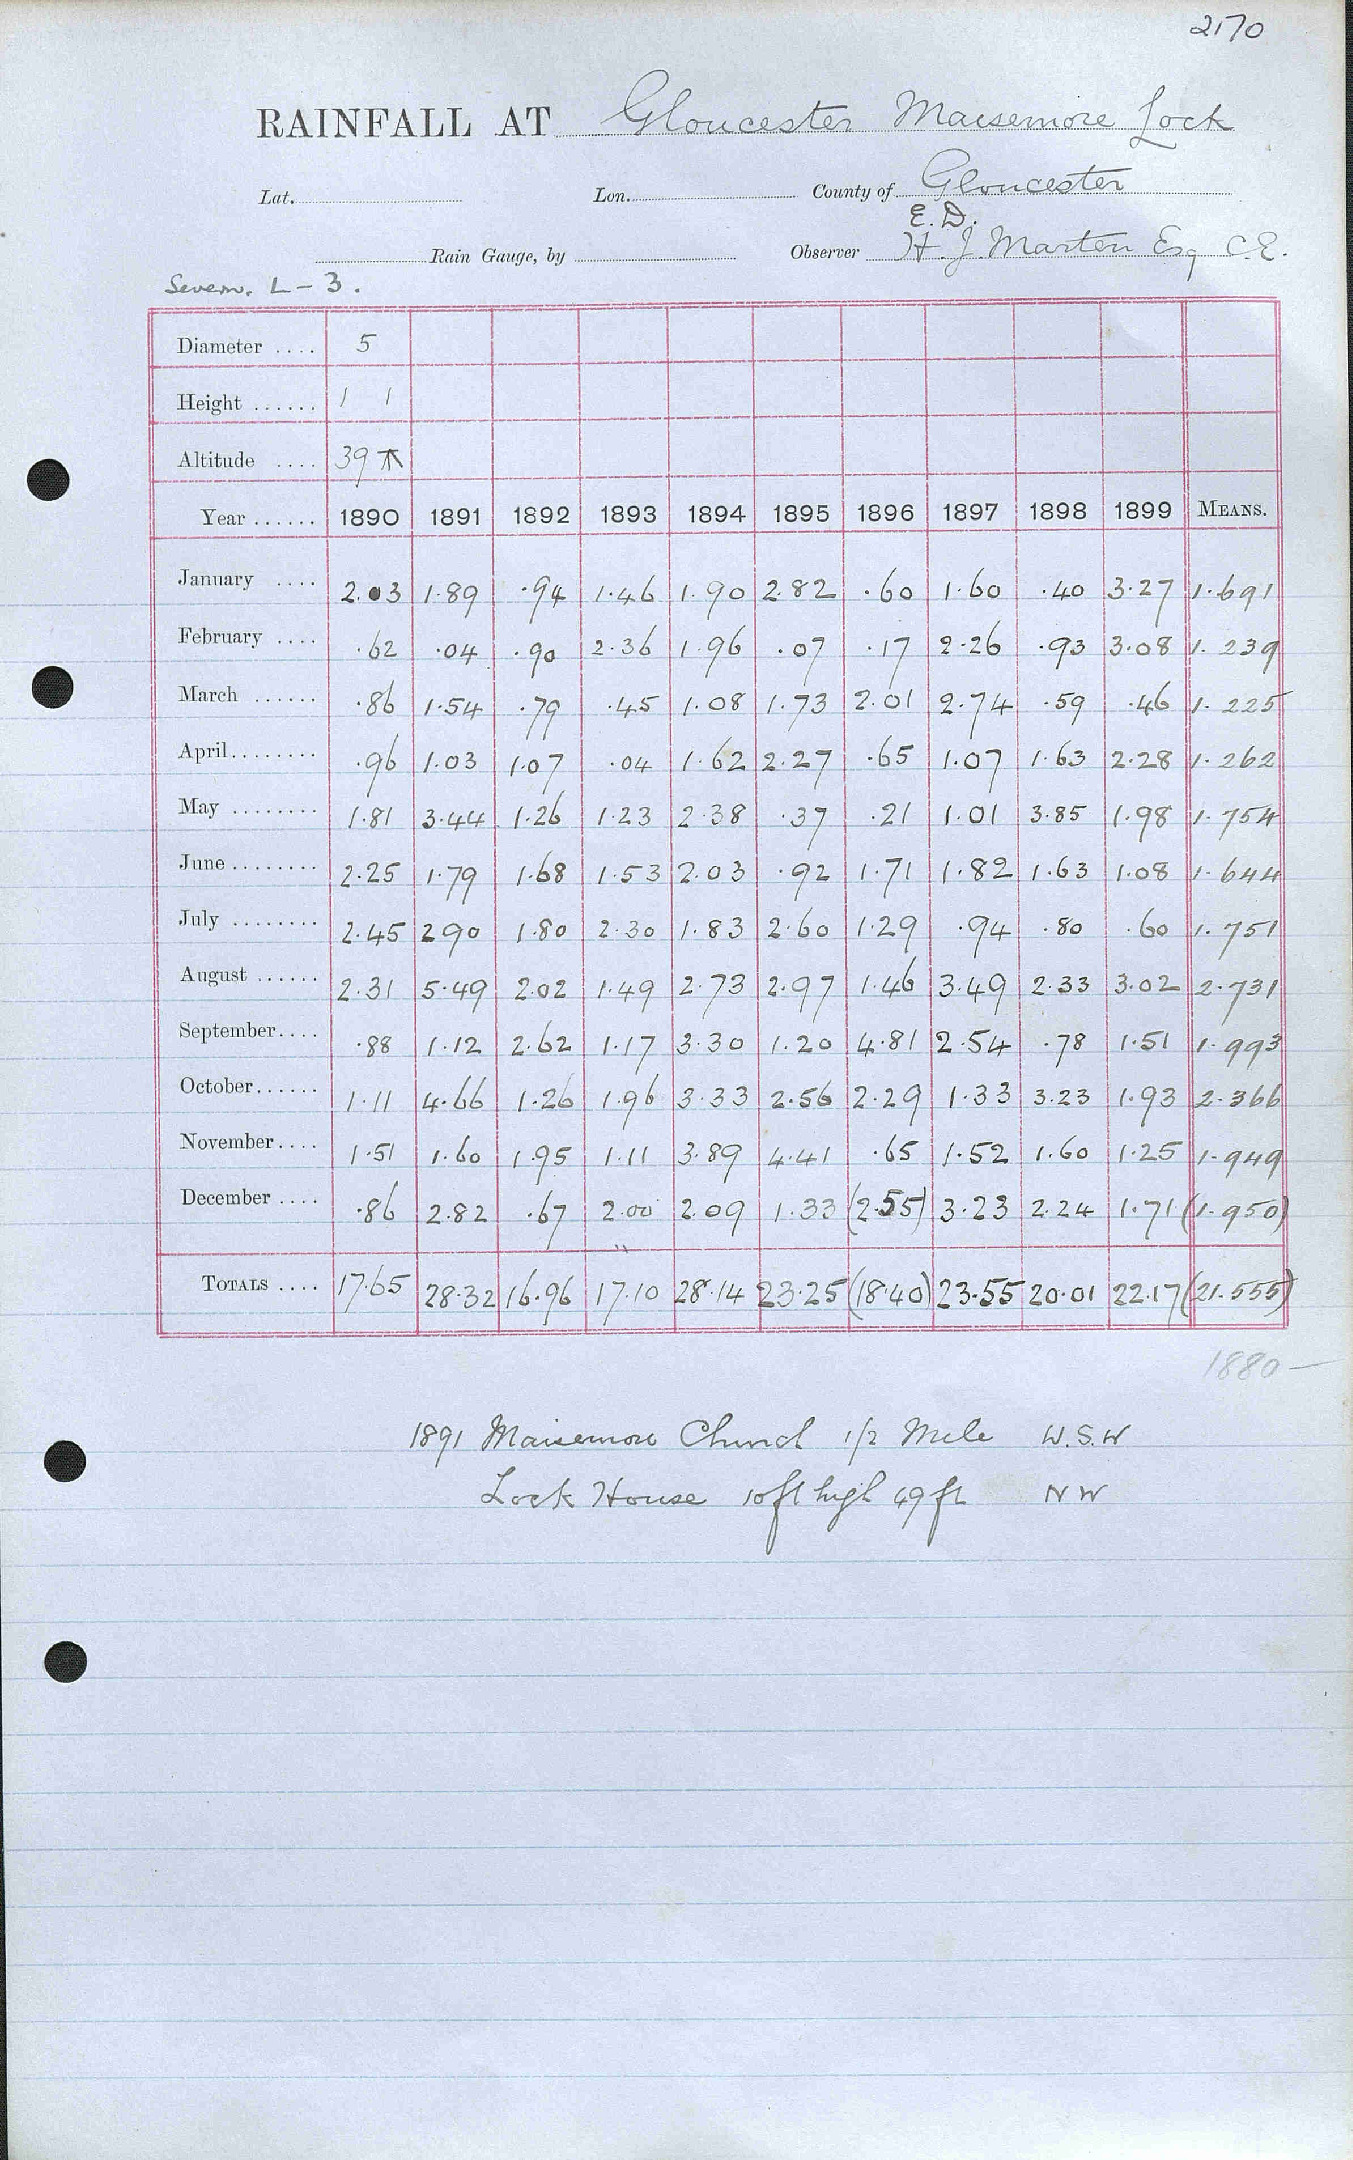 2170
RAINFALL AT Gloucester Maisemore Lock
Lat. Lon. County of Gloucester
E. D.
Rain Gauge, by Observer H. J. Marten Esq C.E.
Severn. L - 3.
Diameter .... 5
Height ...... 1 1
Altitude .... 39
Year ...... 1890 1891 1892 1893 1894 1895 1896 1897 1898 1899 MEANS.
January .... 2.03 1.89 .94 1.46 1.90 2.82 .60 1.60 .40 3.27 1.691
February .... .62 .04 .90 2.36 1.96 .07 .17 2.26 .93 3.08 1.239
March ...... .86 1.54 .79 .45 1.08 1.73 2.01 2.74 .59 .46 1.225
April........ .96 1.03 1.07 .04 1.62 2.27 .65 1.07 1.63 2.28 1.262
May ........ 1.81 3.44 1.26 1.23 2.38 .37 .21 1.01 3.85 1.98 1.754
June ........ 2.25 1.79 1.68 1.53 2.03 .92 1.71 1.82 1.63 1.08 1.644
July ........ 2.45 2 90 1.80 2.30 1.83 2.60 1.29 .94 .80 .60 1.751
August ...... 2.31 5.49 2.02 1.49 2.73 2.97 1.46 3.49 2.33 3.02 2.731
September.... .88 1.12 2.62 1.17 3.30 1.20 4.81 2.54 .78 1.51 1.993
October...... 1.11 4.66 1.26 1.96 3.33 2.56 2.29 1.33 3.23 1.93 2.366
November.... 1.51 1.60 1.95 1.11 3.89 4.41 .65 1.52 1.60 1.25 1.949
December .... .86 2.82 .67 2.00 2.09 1.33 (2.55) 3.23 2.24 1.71 (1.950)
TOTALS .... 17.65 28.32 16.96 17.10 28.14 23.25 (18.40) 23.55 20.01 22.17 (21.555)
1880 —
1891 Maisemore Church 1/2 Mile W.S.W
Lock House 10ft high 49 ft NW